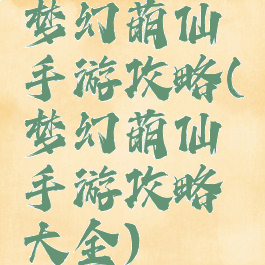 梦幻萌仙
手游攻略(
梦幻萌仙
手游攻略
大全)